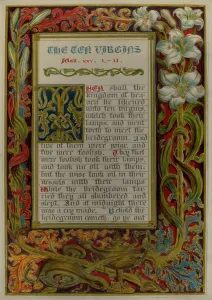 THE TEN VIRGINS
Mat. xxv. 1–11.
THEN shall the
kingdom of heav
en be likened
unto ten virgins
which took their
lamps and went
forth to meet the
bridegroom. And
five of them were wise, and
five were foolish. They that
were foolish took their lamps,
and took no oil with them:
but the wise took oil in their
vessels with their lamps.
While the bridegroom tar
ried they all slumbered and
slept. And at midnight there
was a cry made, Behold the
bridegroom cometh, go ye out